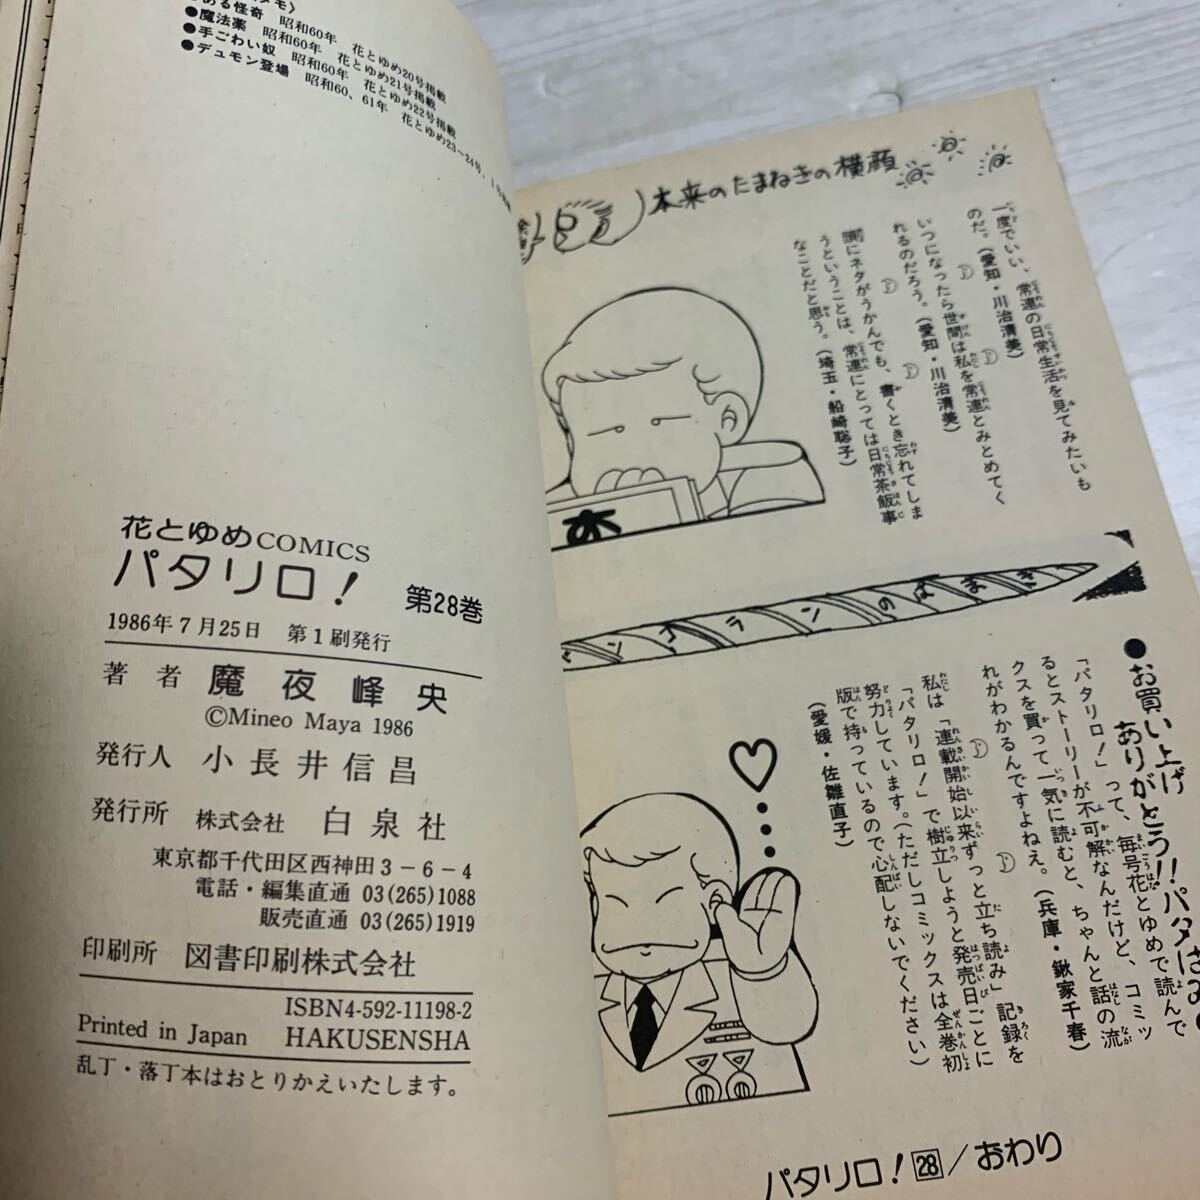 ある怪奇 昭和60年 花とゆめ20号掲載
●魔法薬 昭和60年 花とゆめ21号掲載
●手ごわい奴 昭和60年 花とゆめ22号掲載
●デュモン登場 昭和60、61年 花とゆめ23〜24号、1
花とゆめCOMICS
パタリロ! 第28巻
1986年7月25日 第1刷発行
著者 魔夜峰央
©Mineo Maya 1986
発行人 小長井信昌
発行所 株式会社 白泉社
東京都千代田区西神田3-6-4
電話・編集直通 03(265)1088
販売直通 03(265)1919
印刷所 図書印刷株式会社
ISBN4-592-11198-2
Printed in Japan HAKUSENSHA
乱丁・落丁本はおとりかえいたします。
本来のたまねぎの横顔
一度でいい、常連の日常生活を見てみたいも
のだ。(愛知・川治清美)
いつになったら世間は私を常連とみとめてく
れるのだろう。(愛知・川治清美)
頭にネタがうかんでも、書くとき忘れてしま
うということは、常連にとっては日常茶飯事
なことだと思う。(埼玉・船崎聡子)
本
ンゴランのはまき
●お買い上げ
ありがとう!!パタ
「パタリロ!」って、毎号花とゆめで読んで
るとストーリーが不可解なんだけど、コミッ
クスを買って一気に読むと、ちゃんと話の流
れがわかるんですよねえ。(兵庫・鍬家千春)
私は「連載開始以来ずっと立ち読み」記録を
「パタリロ!」で樹立しようと発売日ごとに
努力しています。(ただしコミックスは全巻初
版で持っているので心配しないでください)
(愛媛・佐雛直子)
パタリロ! 28/おわり